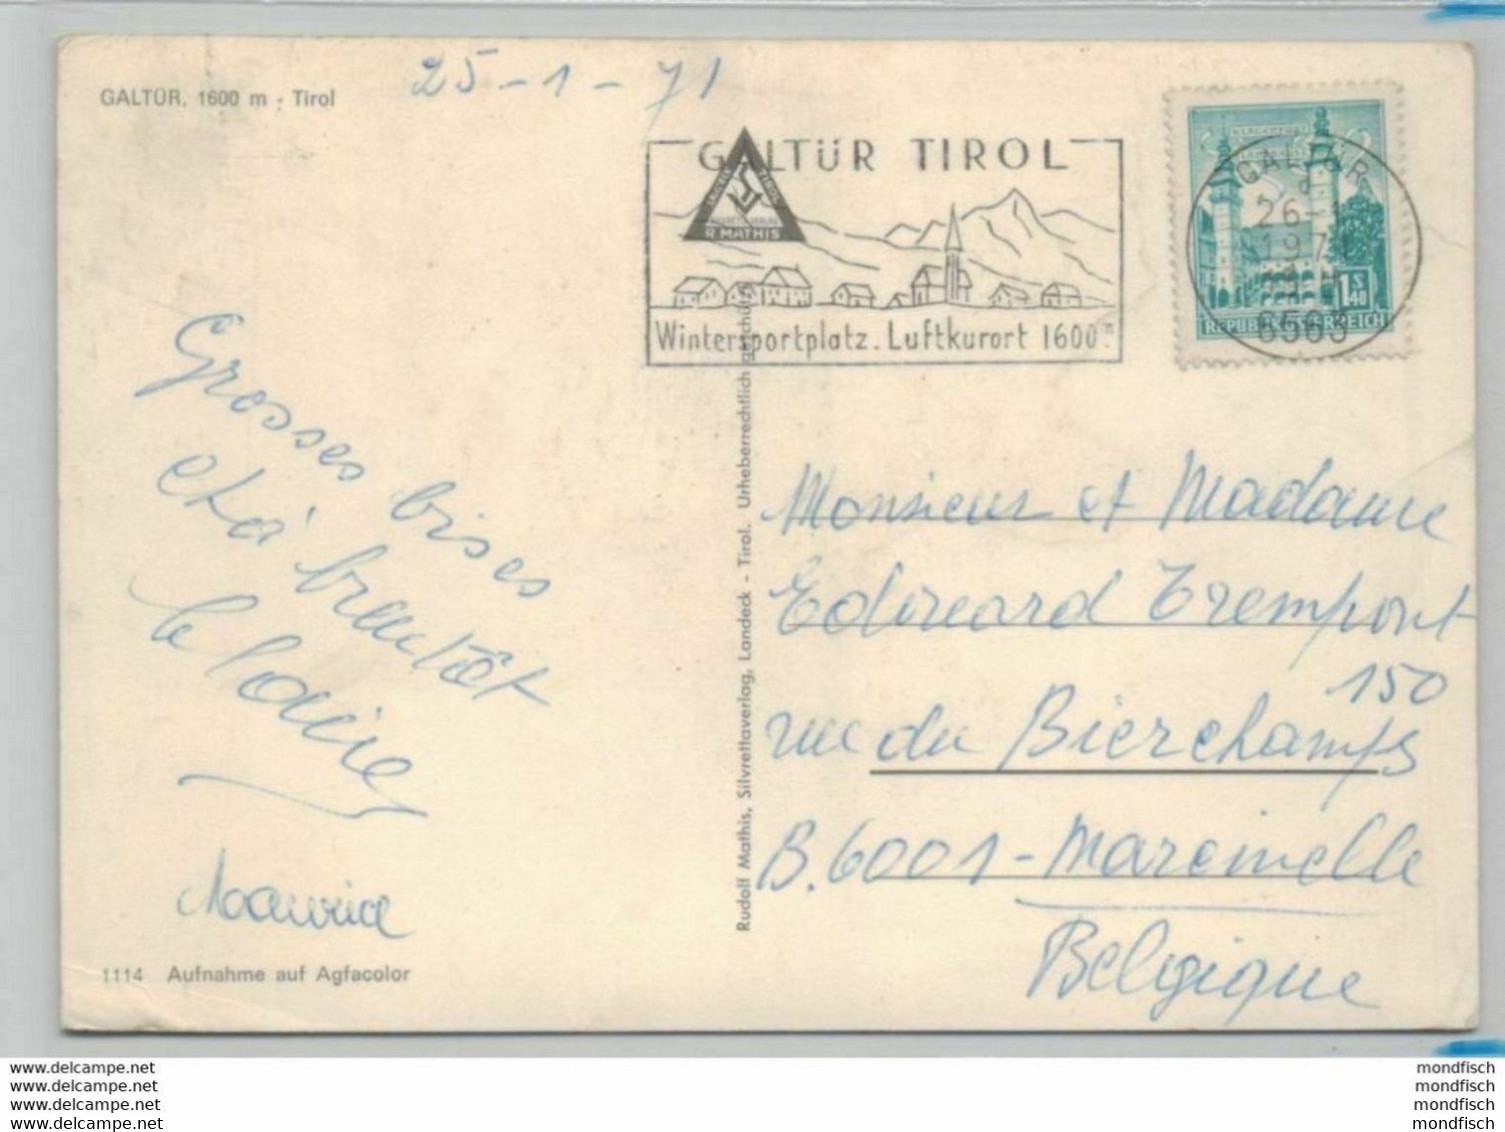 GALTÜR, 1600 m - Tirol
25-1-71
GALTÜR TIROL
R. MATHIS
Wintersportplatz. Luftkurort 1600m.
GALTÜR
26-1
197
6563
1 S 40
REPUBLIK ÖSTERREICH
Grosses bises
et à bientôt
Maurice
1114 Aufnahme auf Agfacolor
Rudolf Mathis, Silvrettaverlag, Landeck - Tirol. Urheberrechtlich geschützt
Monsieur et Madame
Edouard Trempont
150
rue du Bierchamps
B.6001 - Marcinelle
Belgique
www.delcampe.net
www.delcampe.net
www.delcampe.net
www.delcampe.net
mondfisch
mondfisch
mondfisch
mondfisch